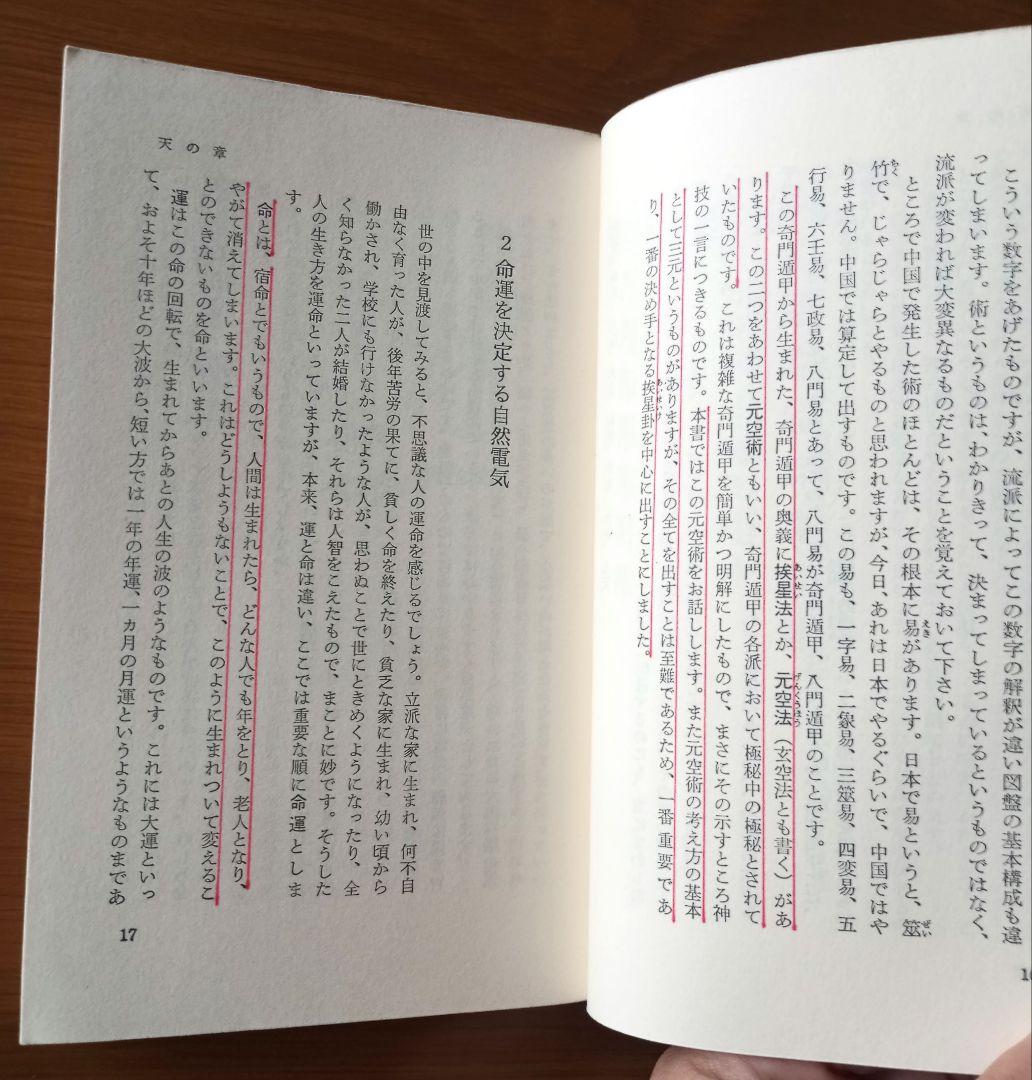 こういう数字をあげたものですが、流派によってこの数字の解釈が違い図盤の基本構成も違
ってしまいます。術というものは、わかりきって、決まってしまっているというものではなく、
流派が変われば大変異なるものだということを覚えておいて下さい。
ところで中国で発生した術のほとんどは、その根本に易があります。日本で易というと、筮
竹で、じゃらじゃらとやるものと思われますが、今日、あれは日本でやるぐらいで、中国ではや
りません。中国では算定して出すものです。この易も、一字易、二象易、三筮易、四変易、五
行易、六壬易、七政易、八門易とあって、八門易が奇門遁甲、八門遁甲のことです。
この奇門遁甲から生まれた、奇門遁甲の奥義に挨星法とか、元空法（玄空法とも書く）があ
ります。この二つをあわせて元空術ともいい、奇門遁甲の各派において極秘中の極秘とされて
いたものです。これは複雑な奇門遁甲を簡単かつ明解にしたもので、まさにその示すところ神
技の一言につきるものです。本書ではこの元空術をお話しします。また元空術の考え方の基本
として三元というものがありますが、その全てを出すことは至難であるため、一番重要であ
り、一番の決め手となる挨星卦を中心に出すことにしました。
16
天の章
2 命運を決定する自然電気
世の中を見渡してみると、不思議な人の運命を感じるでしょう。立派な家に生まれ、何不自
由なく育った人が、後年苦労の果てに、貧しく命を終えたり、貧乏な家に生まれ、幼い頃から
働かされ、学校にも行けなかったような人が、思わぬことで世にときめくようになったり、全
く知らなかった二人が結婚したり、それらは人智をこえたもので、まことに妙です。そうした
人の生き方を運命といっていますが、本来、運と命は違い、ここでは重要な順に命運としま
す。
命とは、宿命とでもいうもので、人間は生まれたら、どんな人でも年をとり、老人となり、
やがて消えてしまいます。これはどうしようもないことで、このように生まれついて変えるこ
とのできないものを命といいます。
運はこの命の回転で、生まれてからあとの人生の波のようなものです。これには大運といっ
て、およそ十年ほどの大波から、短い方では一年の年運、一ヵ月の月運というようなものまであ
17